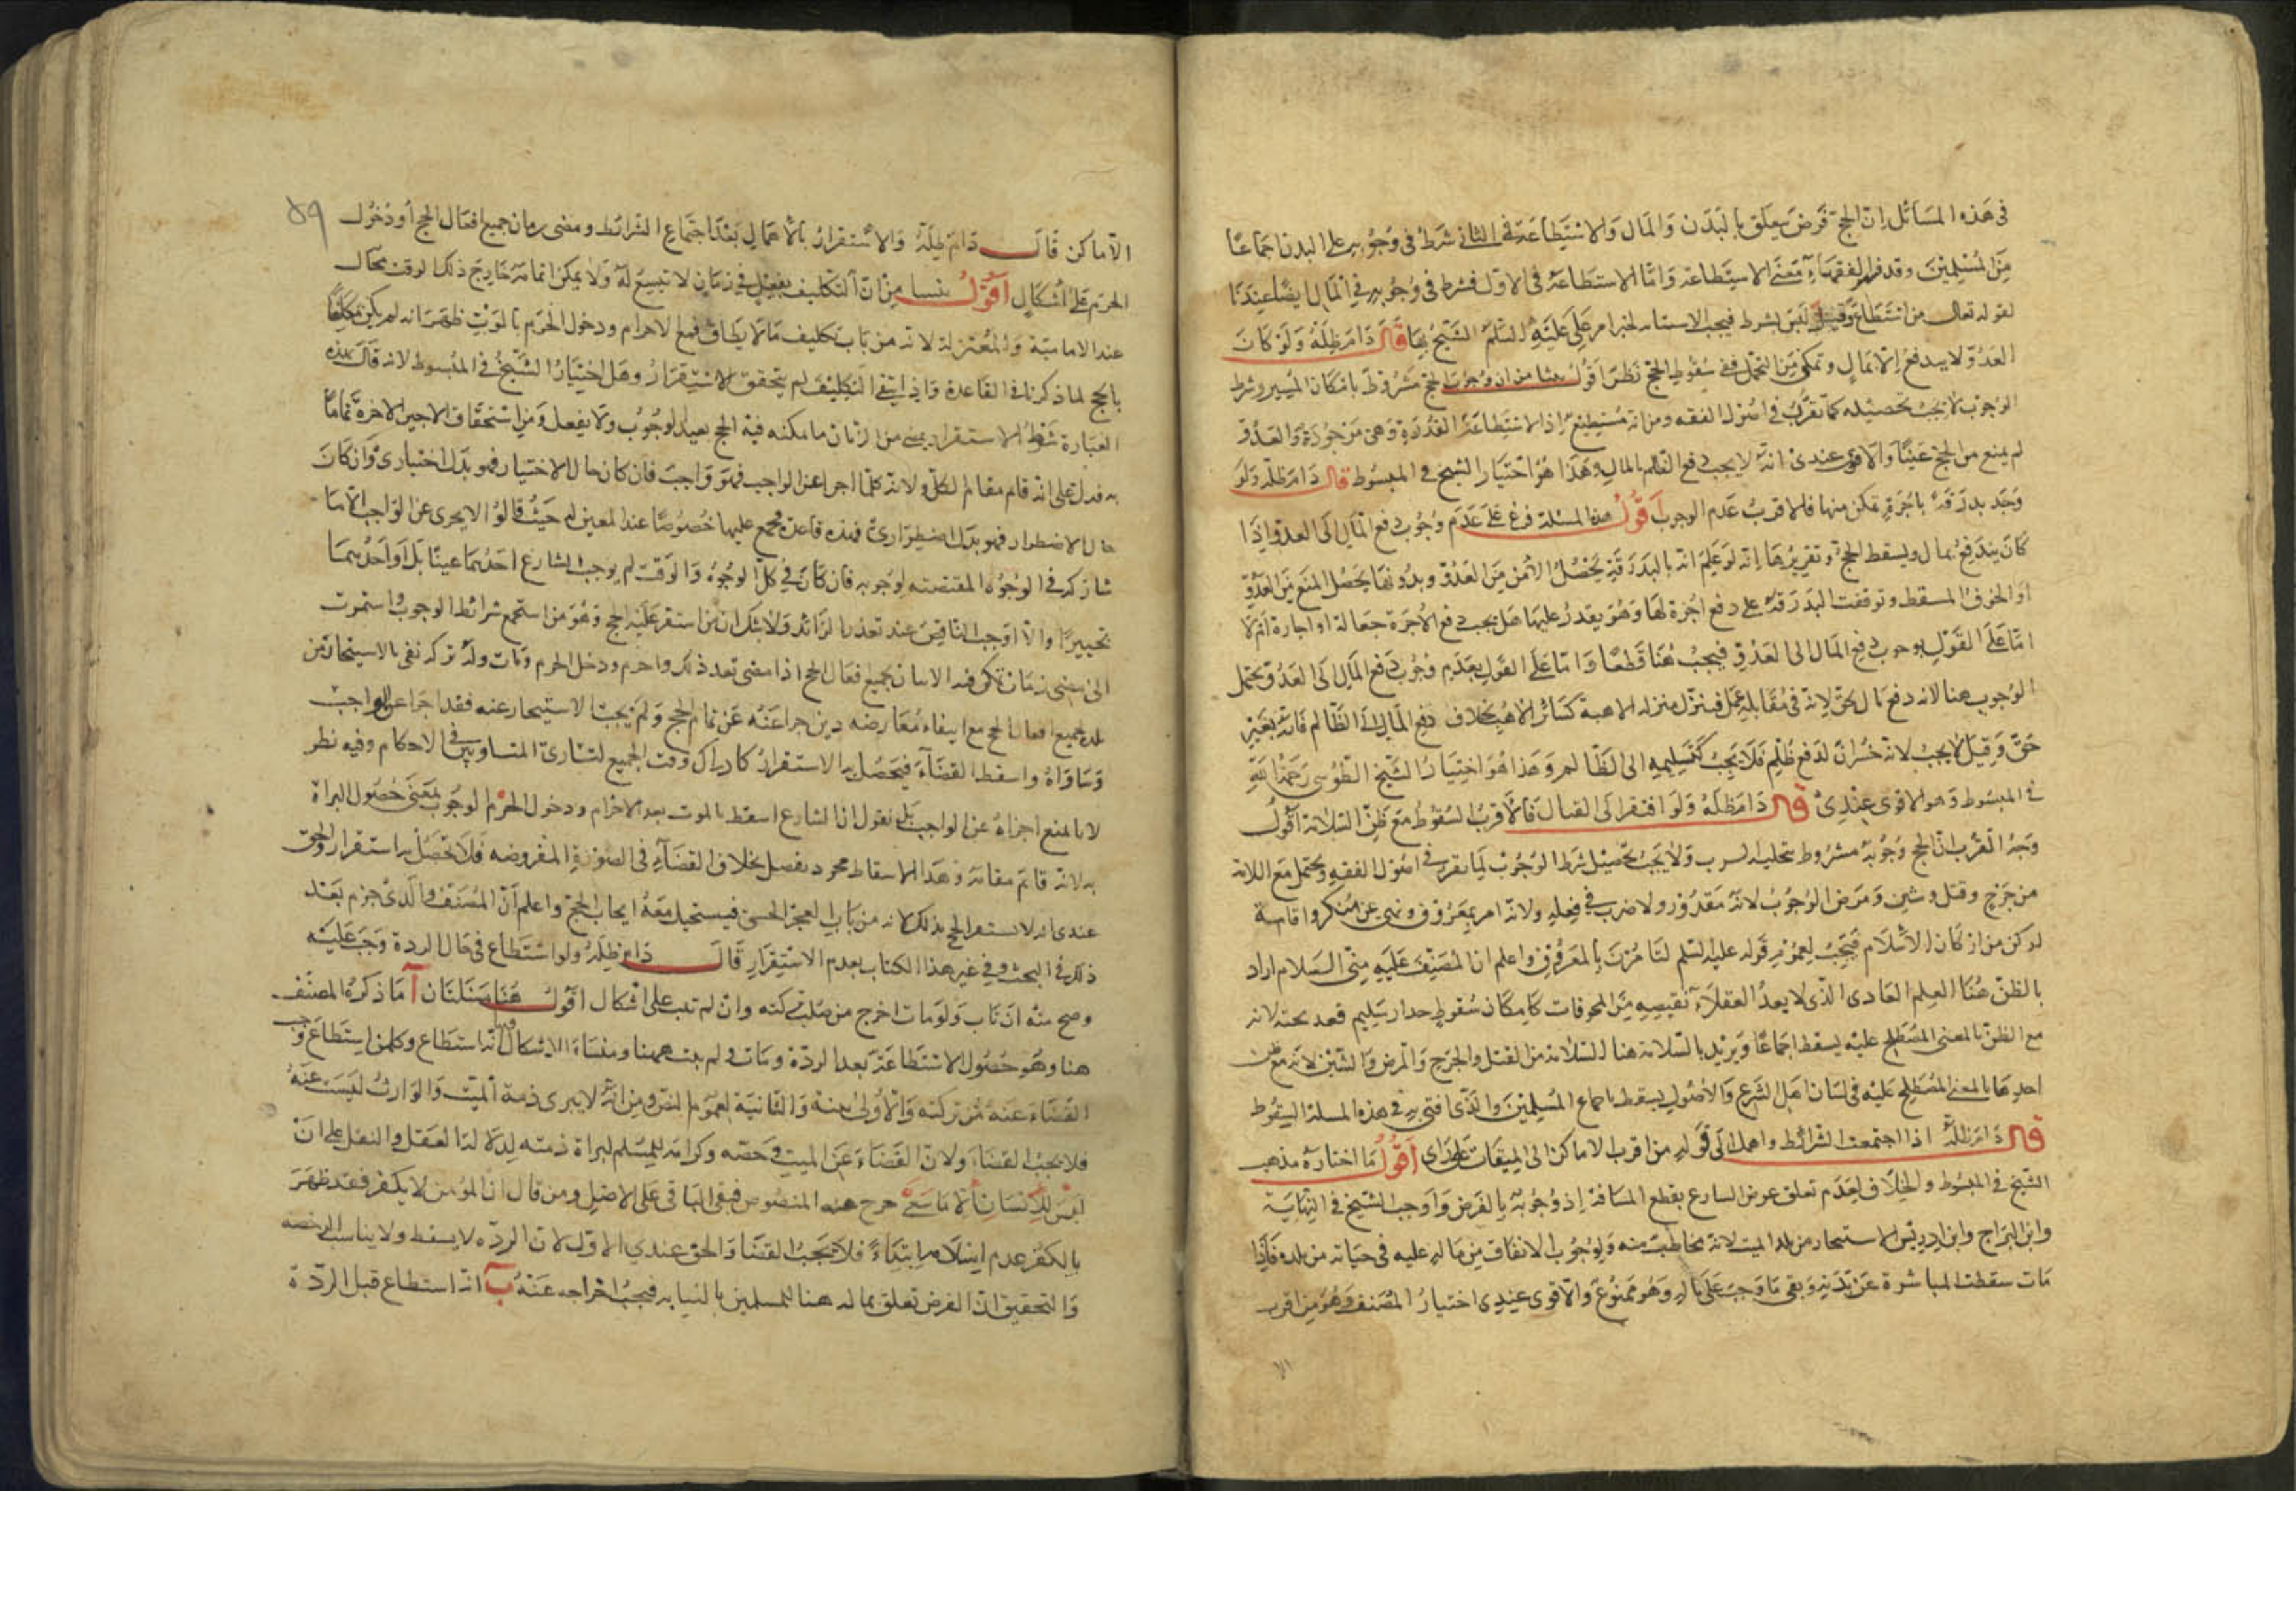 في هذه المسائل ان الحج فرض يتعلق بالبدن والمال والاستطاعة في الثاني شرط في وجوبه على البدن اجماعا
من المسلمين وقد فسر الفقهاء معنى الاستطاعة واما الاستطاعة في الاول فشرط في وجوبه في المال ايضا عندنا
لقوله تعالى من استطاع وقيل ليس بشرط فيجب الاستنابة لخبر امر علي عليه السلم الشيخ بها قال دام ظله ولو كان
العدو لا يندفع الا بمال وتمكن من التحمل ففي سقوط الحج نظر اقول ينشا من ان وجوب الحج مشروط بامكان المسير وشرط
الوجوب لا يجب تحصيله كما تقرر في اصول الفقه ومن انه مستطيع اذ الاستطاعة القدرة وهي موجودة والعدو
لم يمنع من الحج عينا والاقوى عندي انه لا يجب دفع الظالم بالمال وهذا هو اختيار الشيخ في المبسوط قال دام ظله ولو
وجد بدرقة باجرة تمكن منها فالاقرب عدم الوجوب اقول هذه المسئلة فرع على عدم وجوب دفع المال الى العدو اذا
كان يندفع بمال ويسقط الحج وتقريرها انه لو علم انه بالبدرقة يحصل الامن من العدو وبدونها يحصل المنع من العدو
او الخوف المسقط وتوقفت البدرقة على دفع اجرة لها وهو يقدر عليها هل يجب دفع الاجرة جعالة او اجارة ام لا
اما على القول بوجوب دفع المال الى العدو فيجب هنا قطعا واما على القول بعدم وجوب دفع المال الى العدو يحتمل
الوجوب هنا لانه دفع مال بحق لانه في مقابلة عمل فينزل منزلة الاهبة كسائر الاهب بخلاف دفع المال الى الظالم فانه بغير
حق وقيل لا يجب لانه خسران لدفع ظلم فلا يجب كتسليمه الى الظالم وهذا هو اختيار الشيخ الطوسي رحمه الله
في المبسوط وهو الاقوى عندي قال دام ظله ولو افتقر الى القتال فالاقرب السقوط مع ظن السلامة اقول
وجه القرب ان الحج وجوبه مشروط بتخلية السرب ولا يجب تحصيل شرط الوجوب لما تقرر في اصول الفقه ويحتمل مع السلامة
من جرح وقتل وشين ومرض الوجوب لانه مقدور ولا ضرر في فعله ولانه امر بمعروف ونهي عن منكر واقامة
لركن من اركان الاسلام فيجب لعموم قوله عليه السلم لتامرن بالمعروف واعلم ان المصنف عليه مني السلام اراد
بالظن هنا العلم العادي الذي لا يعد العقلاء نقيضه من المخوفات كامكان سقوط جدار سليم قعد تحته لانه
مع الظن بالمعنى المصطلح عليه يسقط اجماعا ويريد بالسلامة هنا السلامة من القتل والجرح والمرض والشين لانه مع ظن
احدها بالمعنى المصطلح عليه في لسان اهل الشرع والاصول يسقط باجماع المسلمين والذي افتي به في هذه المسئلة السقوط
قال دام ظله اذا اجتمعت الشرائط واهمل الى قوله من اقرب الاماكن الى الميقات على راى اقول ما اختاره مذهب
الشيخ في المبسوط والخلاف لعدم تعلق غرض الشارع بقطع المسافة اذ وجوبه بالفرض واوجب الشيخ في النهاية
وابن البراج وابن ادريس الاستيجار من بلد الميت لانه مخاطب منه ولوجوب الانفاق من ماله عليه في حياته من بلده فاذا
مات سقطت المباشرة عن بدنه وبقي ما وجب على ماله وهو ممنوع والاقوى عندي اختيار المصنف وهو من اقرب
٥٩
الاماكن قال دام ظله والاستقرار بالاهمال بعد اجتماع الشرائط ومضى زمان جميع افعال الحج او دخول
الحرم على اشكال اقول ينشا من ان التكليف بفعل في زمان لا يتسع له ولا يمكن اتمامه خارج ذلك الوقت محال
عند الامامية والمعتزلة لانه من باب تكليف ما لا يطاق فمع الاحرام ودخول الحرم بالموت ظهر انه لم يكن مكلفا
بالحج لما ذكرنا في القاعدة واذا انتفى التكليف لم يتحقق الاستقرار وهل اختيار الشيخ في المبسوط لانه قال هذه
العبارة شرط الاستقرار يمضي من الزمان ما يمكنه فيه الحج بعد الوجوب ولا يفعل ومن استحقاق الاجير الاجرة تماما
به فدل على انه قام مقام الكل ولانه كلما اجزا عن الواجب فهو واجب فان كان حال الاختيار فهو بدل اختياري وان كان
حال الاضطرار فهو بدل اضطراري فهذه قاعدة مجمع عليها خصوصا عند المعتزله حيث قالوا لا يجزى عن الواجب الا ما
شاركه في الوجوه المقتضية لوجوبه فان كان في كل الوجوه والوقت لم يوجب الشارع احدهما عينا بل اوجب احدهما
تخييرا والا اوجب الناقص عند تعذر الزائد ولا شك ان من استقر عليه الحج وهو من استجمع شرائط الوجوب واستمرت
الى مضى زمان تمكن فيه الاتيان بجميع افعال الحج اذا مضى بعد ذلك واحرم ودخل الحرم ومات وله تركة تفي بالاستيجار من
بلده لجميع افعال الحج مع انتفاء معارضة دين اجزا عنه عن تمام الحج ولم يجب الاستيجار عنه فقد اجزا عن الواجب
وساواه واسقط القضاء فيحصل به الاستقرار كادراك وقت الجميع لتساوي المتساويين في الاحكام وفيه نظر
لانا نمنع اجزاه عن الواجب بل نقول ان الشارع اسقط بالموت بعد الاحرام ودخول الحرم الوجوب بمعنى حصول البراة
به لانه قائم مقامه وهذا الاسقاط مجرد تفضل بخلاف القضاء في الصورة المفروضة فلا يحصل به استقرار والحق
عندي انه لا يستقر الحج بذلك لانه من باب العجز الحسي فيستحيل معه ايجاب الحج واعلم ان المصنف والدي جزم بعد
ذلك في البحث وفي غير هذا الكتاب بعدم الاستقرار قال دام ظله ولو استطاع في حال الردة وجب عليه
وصح منه ان تاب ولو مات اخرج من صلب تركته وان لم يتب على اشكال اقول هنا مسئلتان آ ما ذكره المصنف
هنا وهو حصول الاستطاعة بعد الردة ومات ولم يتب ههنا ومنشاء الاشكال انه استطاع وكلمن استطاع وجب
القضاء عنه من تركته والاولى بينة والثانية لعموم النص ومن انه لا يبرى ذمة الميت والوارث ليست عنه
فلا يجب القضاء ولان القضاء عن الميت في حصه وكرامة للمسلم لبراة ذمته لدلالة العقل والنقل على ان
ليس للانسان الا ما سعى خرج عنه المنصوص فبقي الباقي على الاصل ومن قال ان المؤمن لا يكفر فقد ظهر
بالكفر عدم اسلامه ابتداء فلا يجب القضا والحق عندي الاول لان الردة لا يسقط ولا يناسب الرخصة
والتحقيق ان الفرض تعلق بماله هنا للمسلمين بالنيابه فيجب اخراجه عنه ب انه استطاع قبل الردة